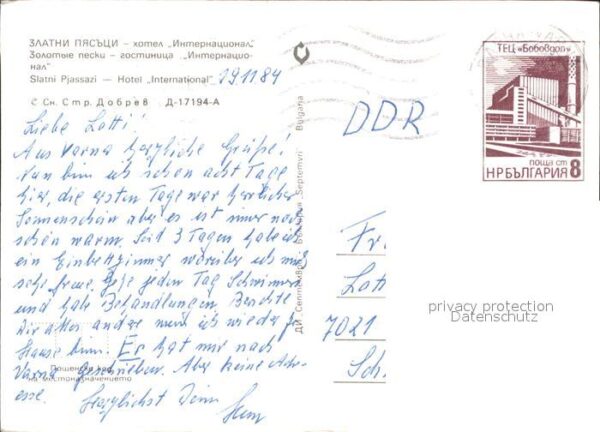 ЗЛАТНИ ПЯСЪЦИ – хотел „Интернационал“
Золотые пески – гостиница „Интернацио-
нал“
Slatni Pjassazi – Hotel „International“
29.11.84
С Сн. Стр. Добрев Д-17194-А
ТЕЦ „Бобовдол“
ПОЩА СТ
НР БЪЛГАРИЯ 8
DDR
Liebe Lotti!
Aus Varna herzliche Grüße!
Nun bin ich schon acht Tage
hier, die ersten Tage war herrlicher
Sonnenschein aber es ist immer noch
schön warm. Seit 3 Tagen habe ich
ein Einbettzimmer worüber ich mich
sehr freue. Gehe jeden Tag Schwimmen
und habe Behandlungen. Berichte
Dir alles andere wenn ich wieder zu
Hause bin. Er hat mir nach
Varna geschrieben. Aber keine Adr-
esse. Herzlichst Deine
Fr.
Lot
7021
Sch.
Пощенски код
на местоназначението
ДИ „Септември“ България Septemvri Bulgaria
privacy protection
Datenschutz